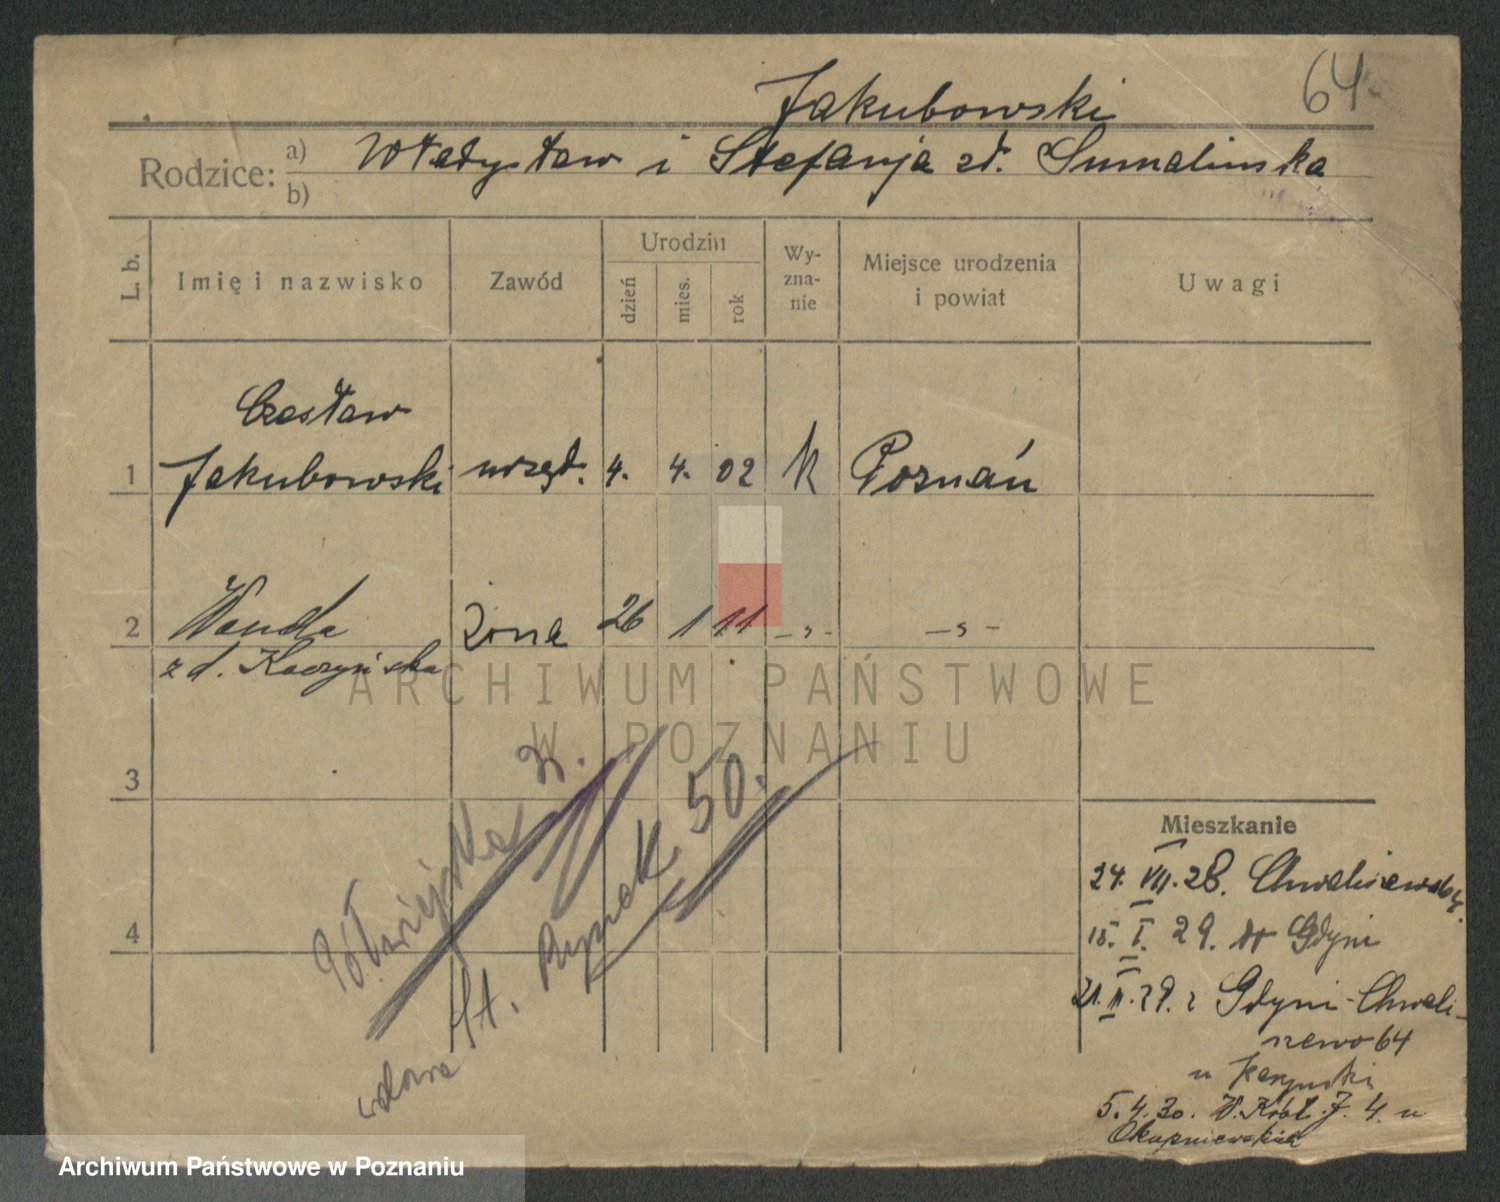 64
Jakubowski
Rodzice: a) Władysław i Stefanja zd. Sumalinska
b)
L. b. Imię i nazwisko Zawód Urodzin dzień mies. rok Wy-zna-nie Miejsce urodzenia i powiat Uwagi
Czesław
1 Jakubowski urzęd. 4. 4. 02 K Poznań
2 Wanda żona 26 1 11 - „ - - „ -
z d. Kaczyńska
ARCHIWUM PAŃSTWOWE
W POZNANIU
3
4
Półwiejska
St. Rynek 50.
Mieszkanie
24. VII. 28. Chwaliszewo 64.
15. I. 29. do Gdyni
21. II. 29. z Gdyni - Chwali-
szewo 64
u
5. 4. 30. J. 4. u
Okupniewskich
Archiwum Państwowe w Poznaniu